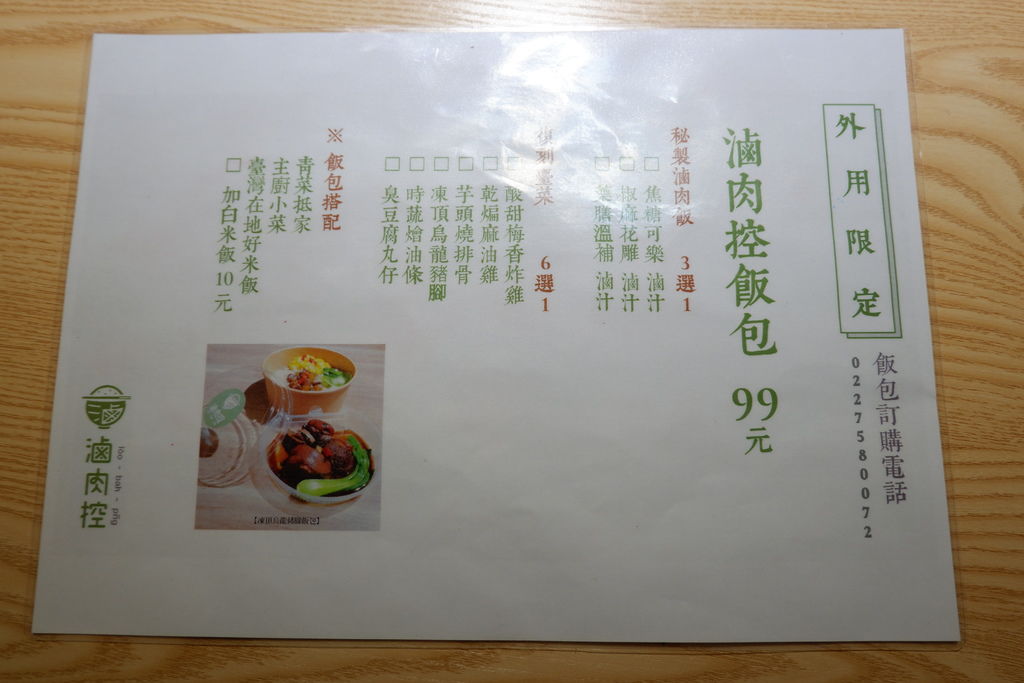 外用限定
飯包訂購電話
0227580072
滷肉控飯包 99元
秘製滷肉飯 3選1
□ 焦糖可樂 滷汁
□ 椒麻花雕 滷汁
□ 藥膳溫補 滷汁
復刻臺菜 6選1
□ 酸甜梅香炸雞
□ 乾煸麻油雞
□ 芋頭燒排骨
□ 凍頂烏龍豬腳
□ 時蔬燴油條
□ 臭豆腐丸仔
※ 飯包搭配
青菜抵家
主廚小菜
臺灣在地好米飯
□ 加白米飯 10元
【凍頂烏龍豬腳飯包】
滷肉控
lóo-bah-pn̄g